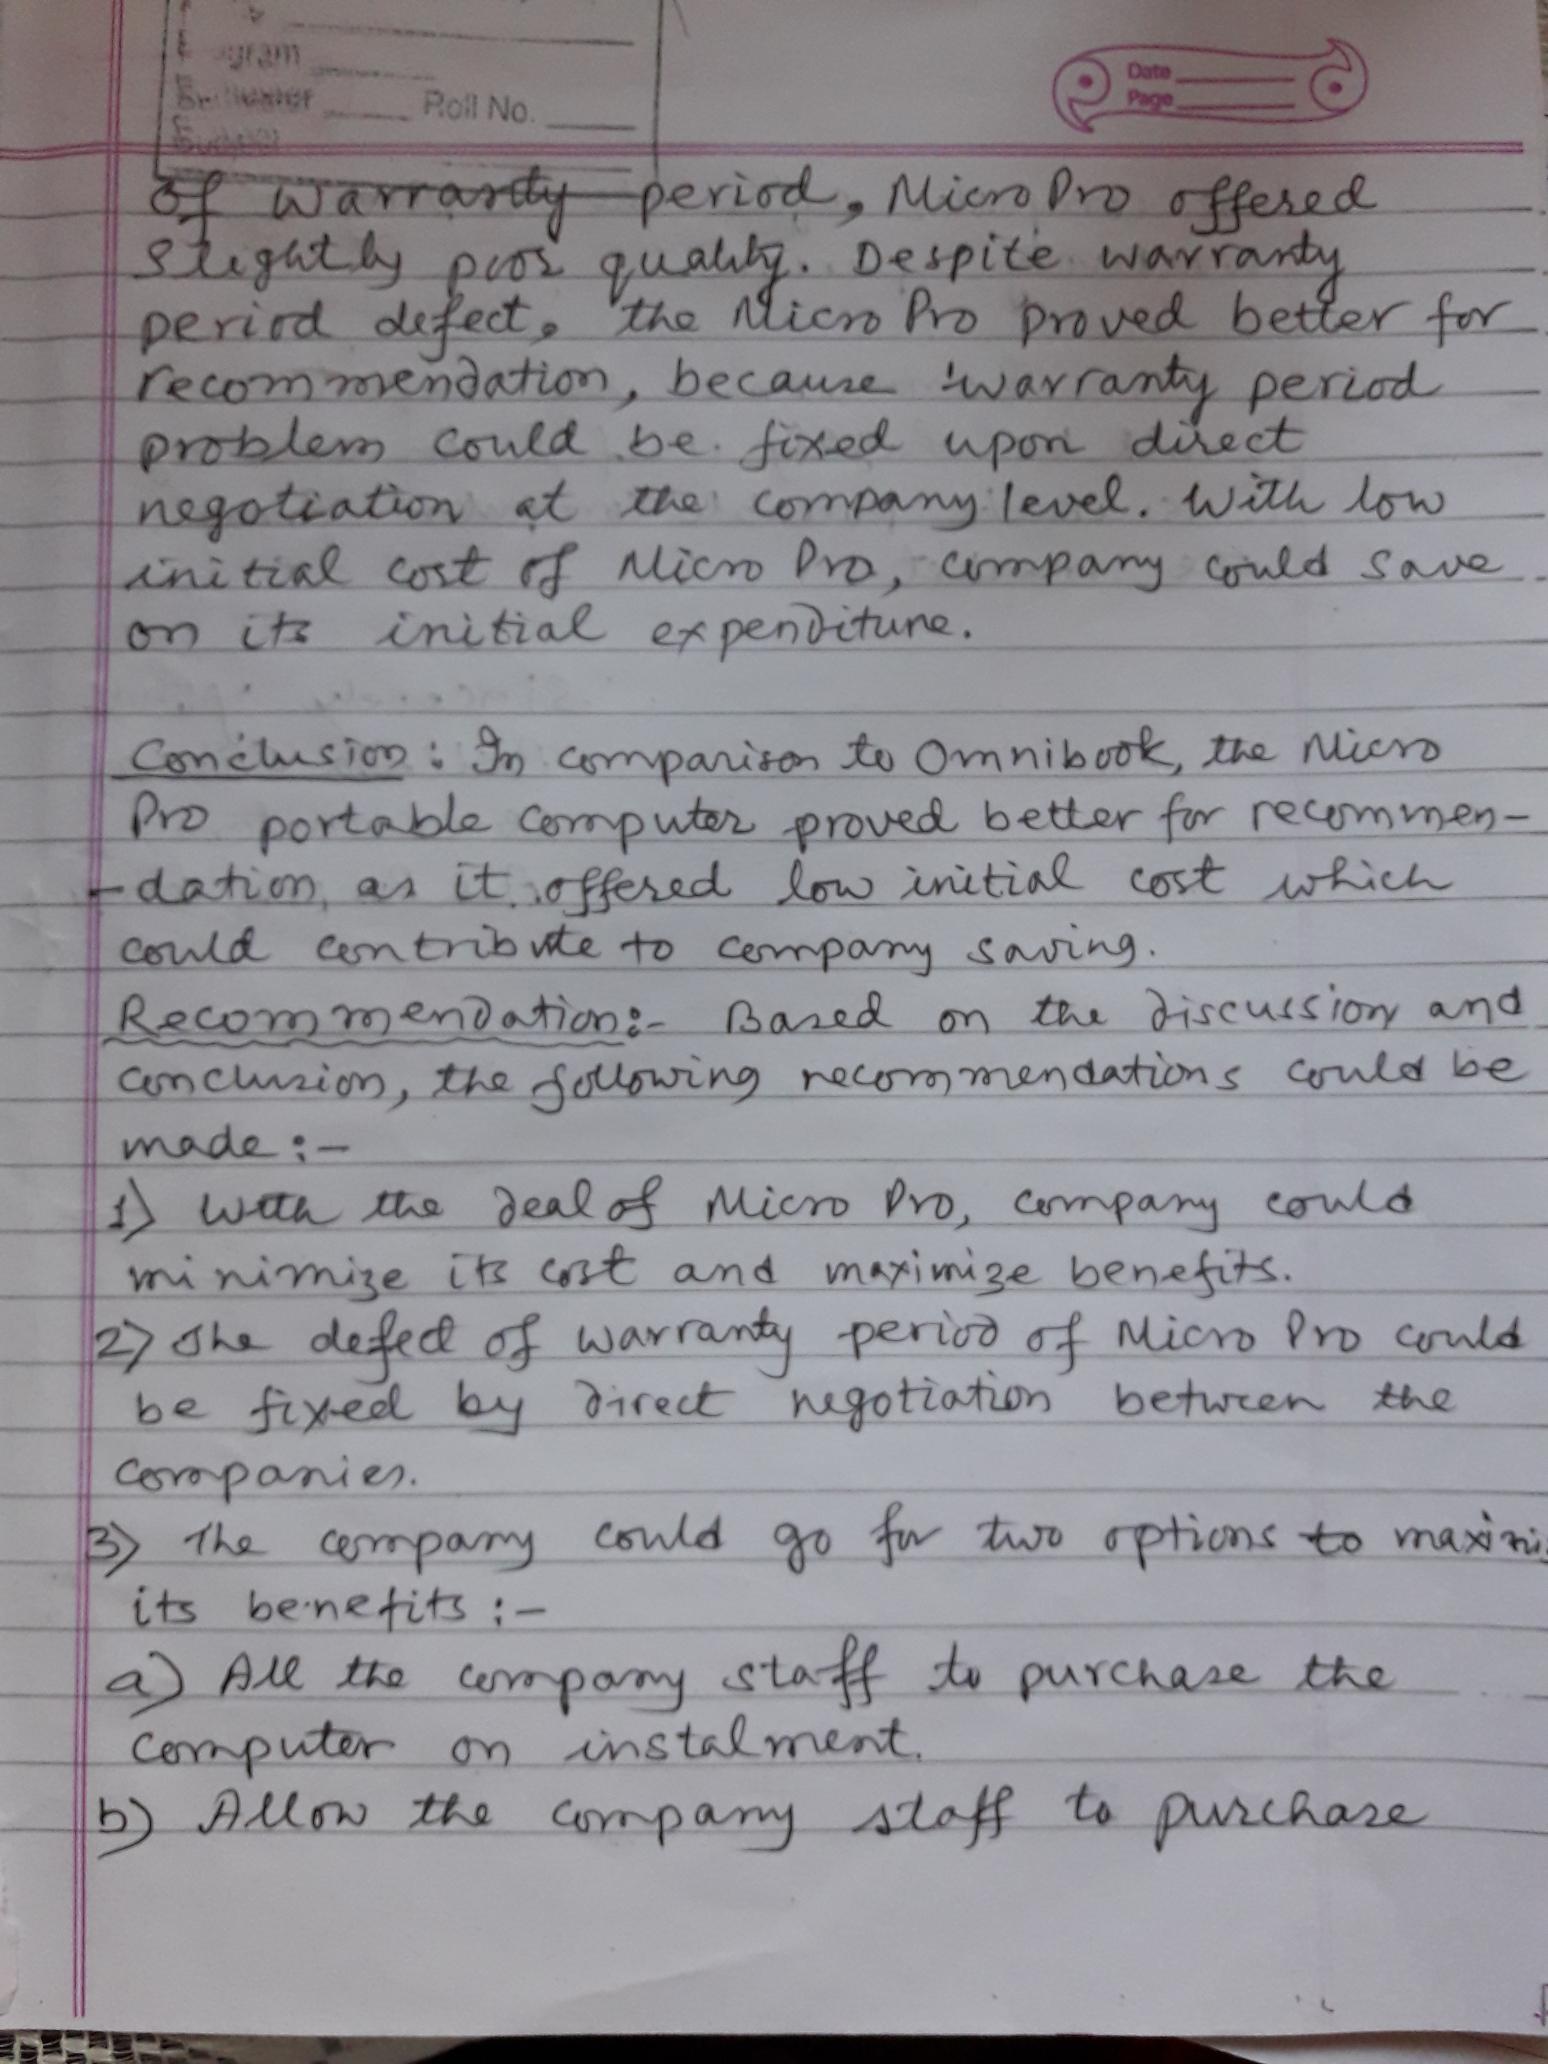 ogram
Roll No.
Date
Page
of warranty period, Micro Pro offered
slightly poor quality. Despite warranty
period defect, the Micro Pro proved better for
recommendation, because warranty period
problem could be fixed upon direct
negotiation at the company level. With low
initial cost of Micro Pro, company could save
on its initial expenditure.
Conclusion: In comparison to Omnibook, the Micro
Pro portable computer proved better for recommen-
-dation, as it offered low initial cost which
could contribute to company saving.
Recommendation:- Based on the discussion and
conclusion, the following recommendations could be
made:-
1) With the deal of Micro Pro, company could
minimize its cost and maximize benefits.
2) The defect of warranty period of Micro Pro could
be fixed by direct negotiation between the
companies.
3) The company could go for two options to maximi
its benefits:-
a) All the company staff to purchase the
computer on instalment.
b) Allow the company staff to purchase